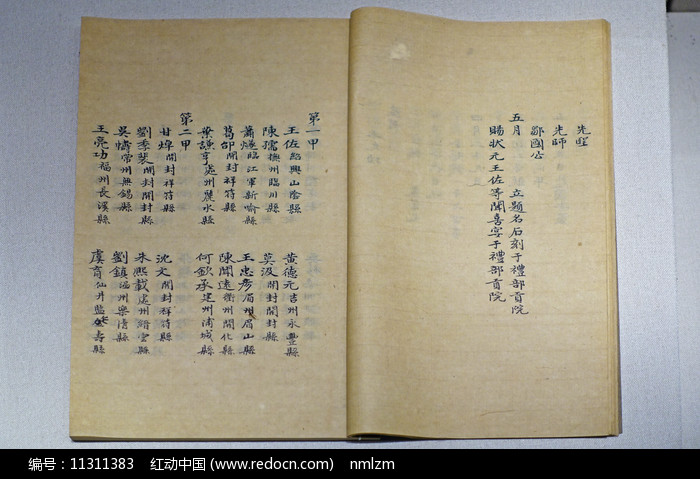 先聖
先師
鄒國公
五月 立題名石刻于禮部貢院
賜狀元王佐等聞喜宴于禮部貢院
第一甲
王佐紹興山陰縣 黃德元吉州永豐縣
陳孺撫州臨川縣 莫汲開封開封縣
蕭燧臨江軍新喻縣 王忠彥眉州眉山縣
葛邰開封祥符縣 陳聞遠衢州開化縣
葉謙亨處州麗水縣 何欽承建州浦城縣
第二甲
甘焯開封祥符縣 沈文開封祥符縣
劉季裴開封開封縣 朱熙載處州縉雲縣
吳懤常州無錫縣 劉鎮溫州樂清縣
王亮功福州長溪縣 虞育仙井監仁壽縣
编号：11311383 红动中国 (www.redocn.com) nmlzm